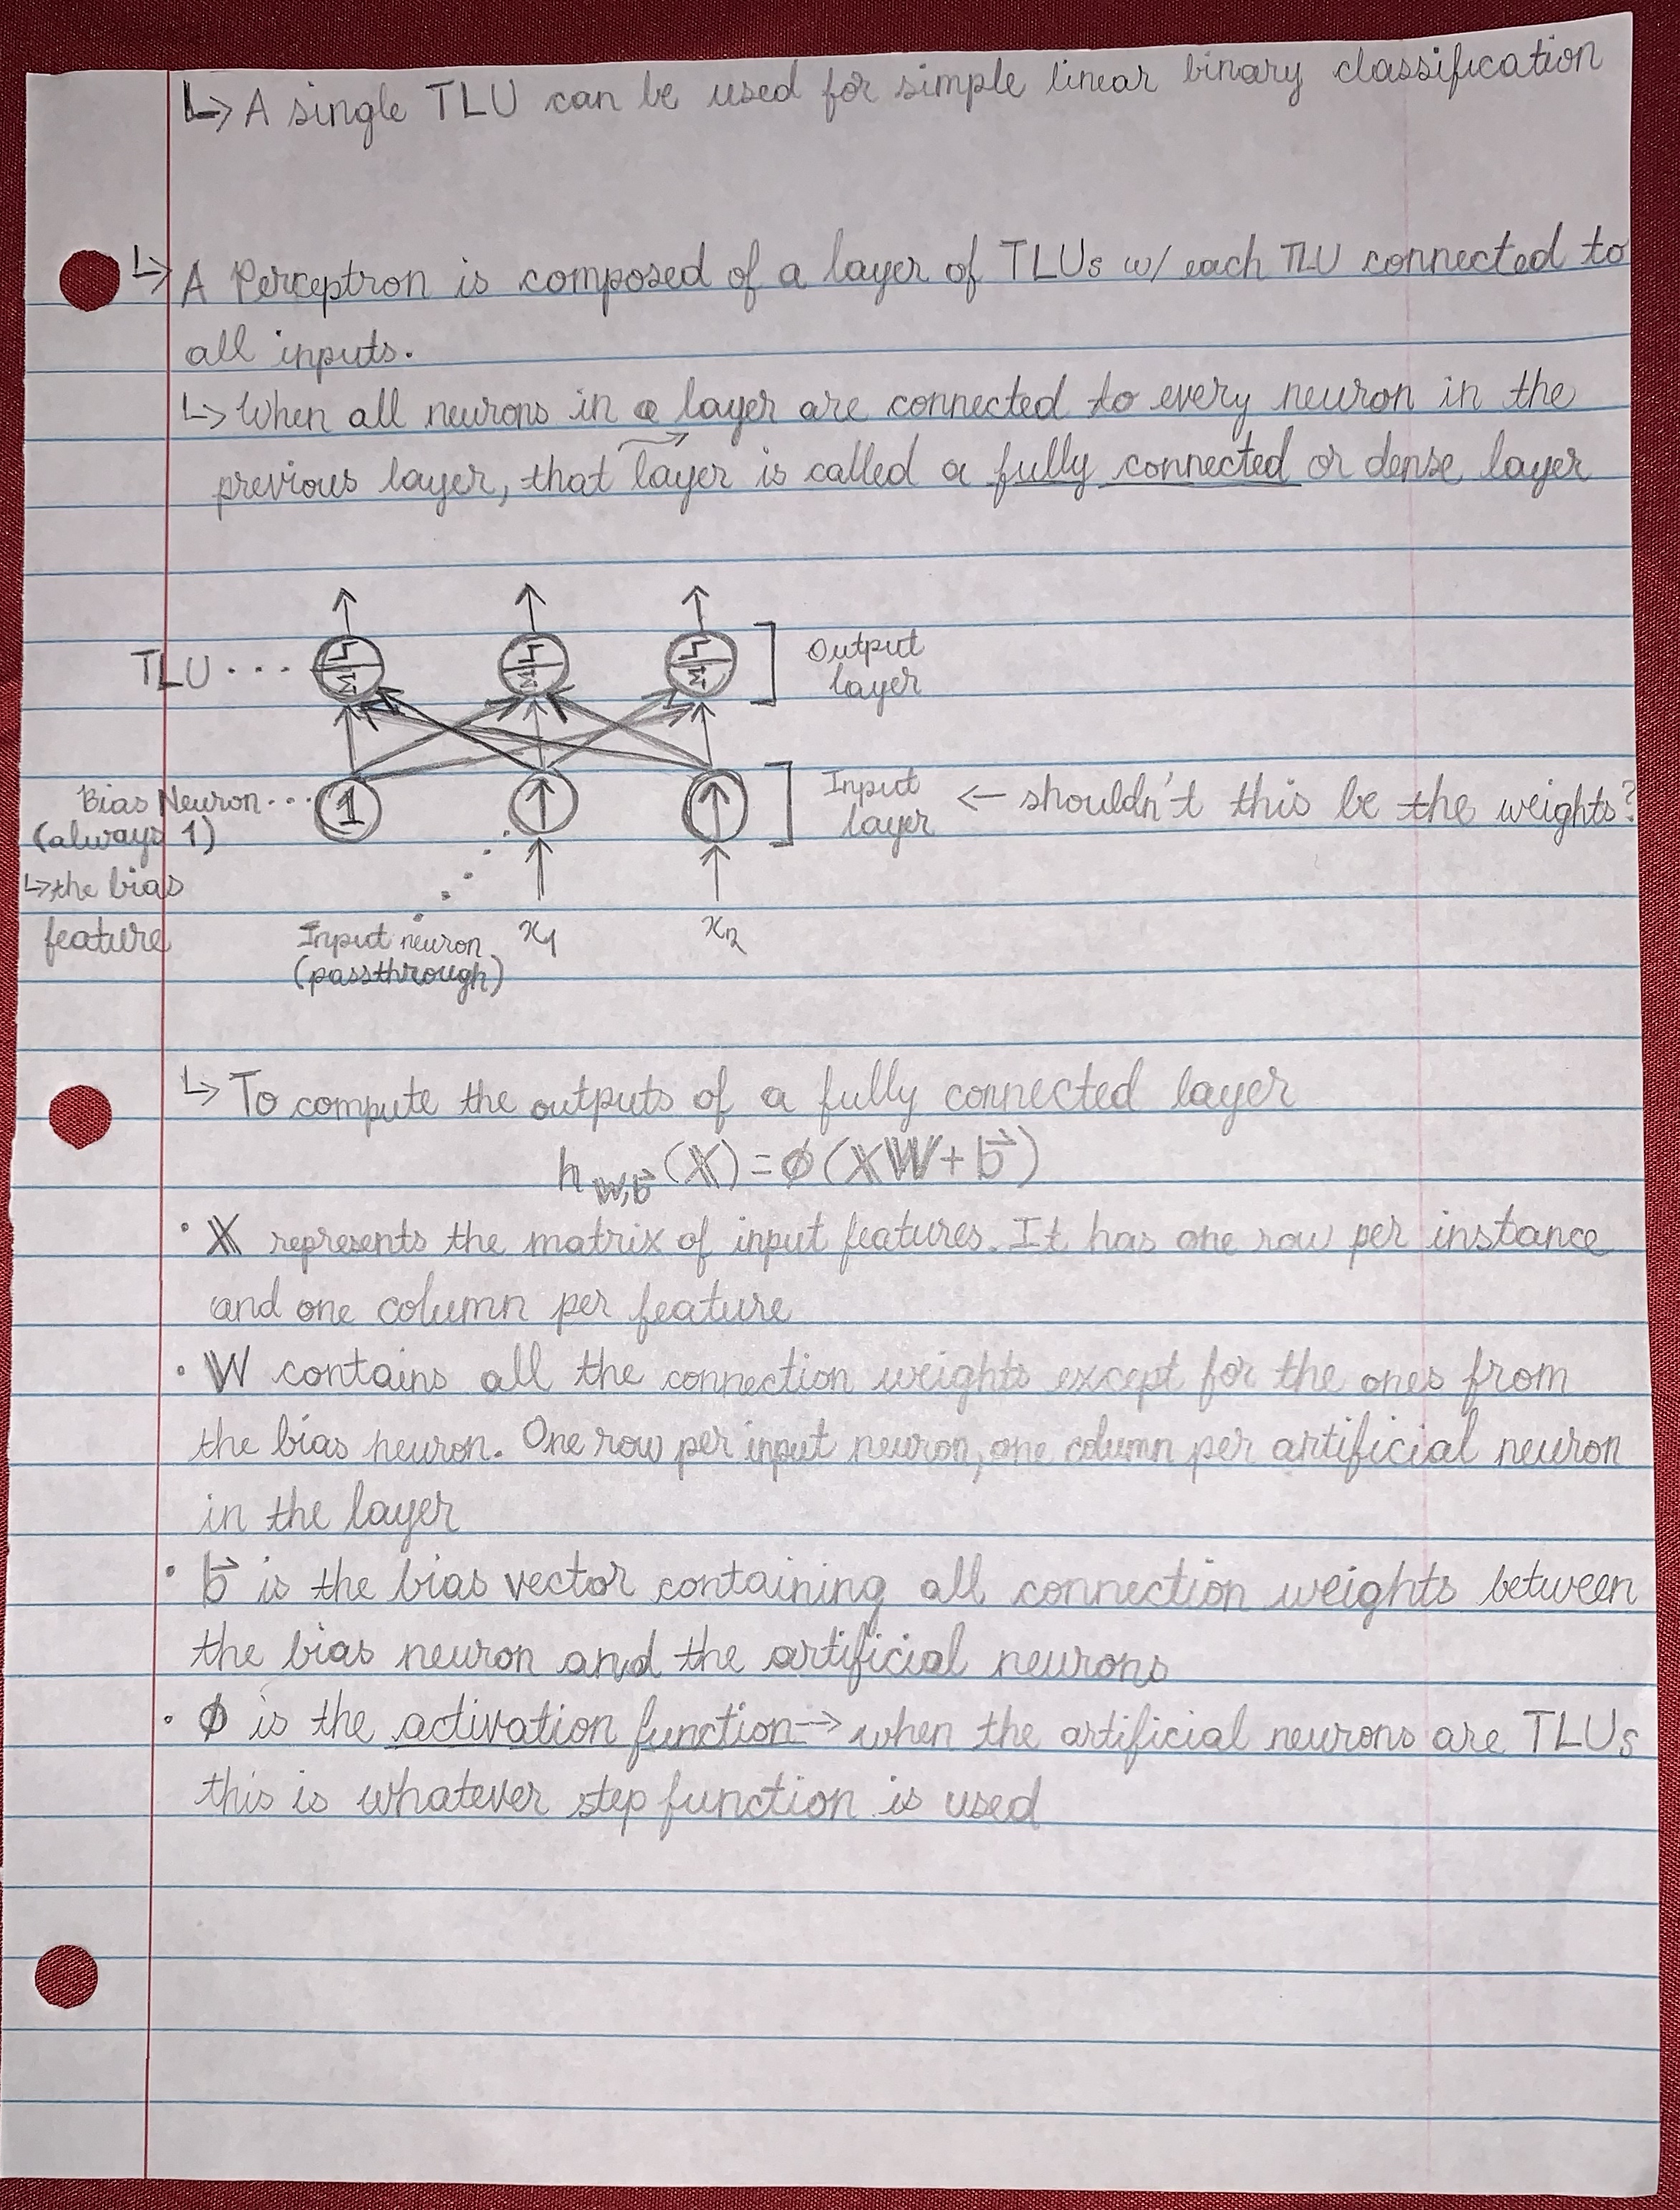 ↳ A single TLU can be used for simple linear binary classification
↳ A Perceptron is composed of a layer of TLUs w/ each TLU connected to
all inputs.
↳ When all neurons in a layer are connected to every neuron in the
previous layer, that layer is called a fully connected or dense layer
TLU ...
Σ Σ Σ
Output
layer
Bias Neuron ...
(always 1)
↳ the bias
feature
1
Input
layer
← shouldn't this be the weights?
Input neuron
(passthrough)
x₁
x₂
↳ To compute the outputs of a fully connected layer
h_{W,b⃗}(X) = ϕ(XW + b⃗)
• X represents the matrix of input features. It has one row per instance
and one column per feature
• W contains all the connection weights except for the ones from
the bias neuron. One row per input neuron, one column per artificial neuron
in the layer
• b⃗ is the bias vector containing all connection weights between
the bias neuron and the artificial neurons
• ϕ is the activation function → when the artificial neurons are TLUs
this is whatever step function is used